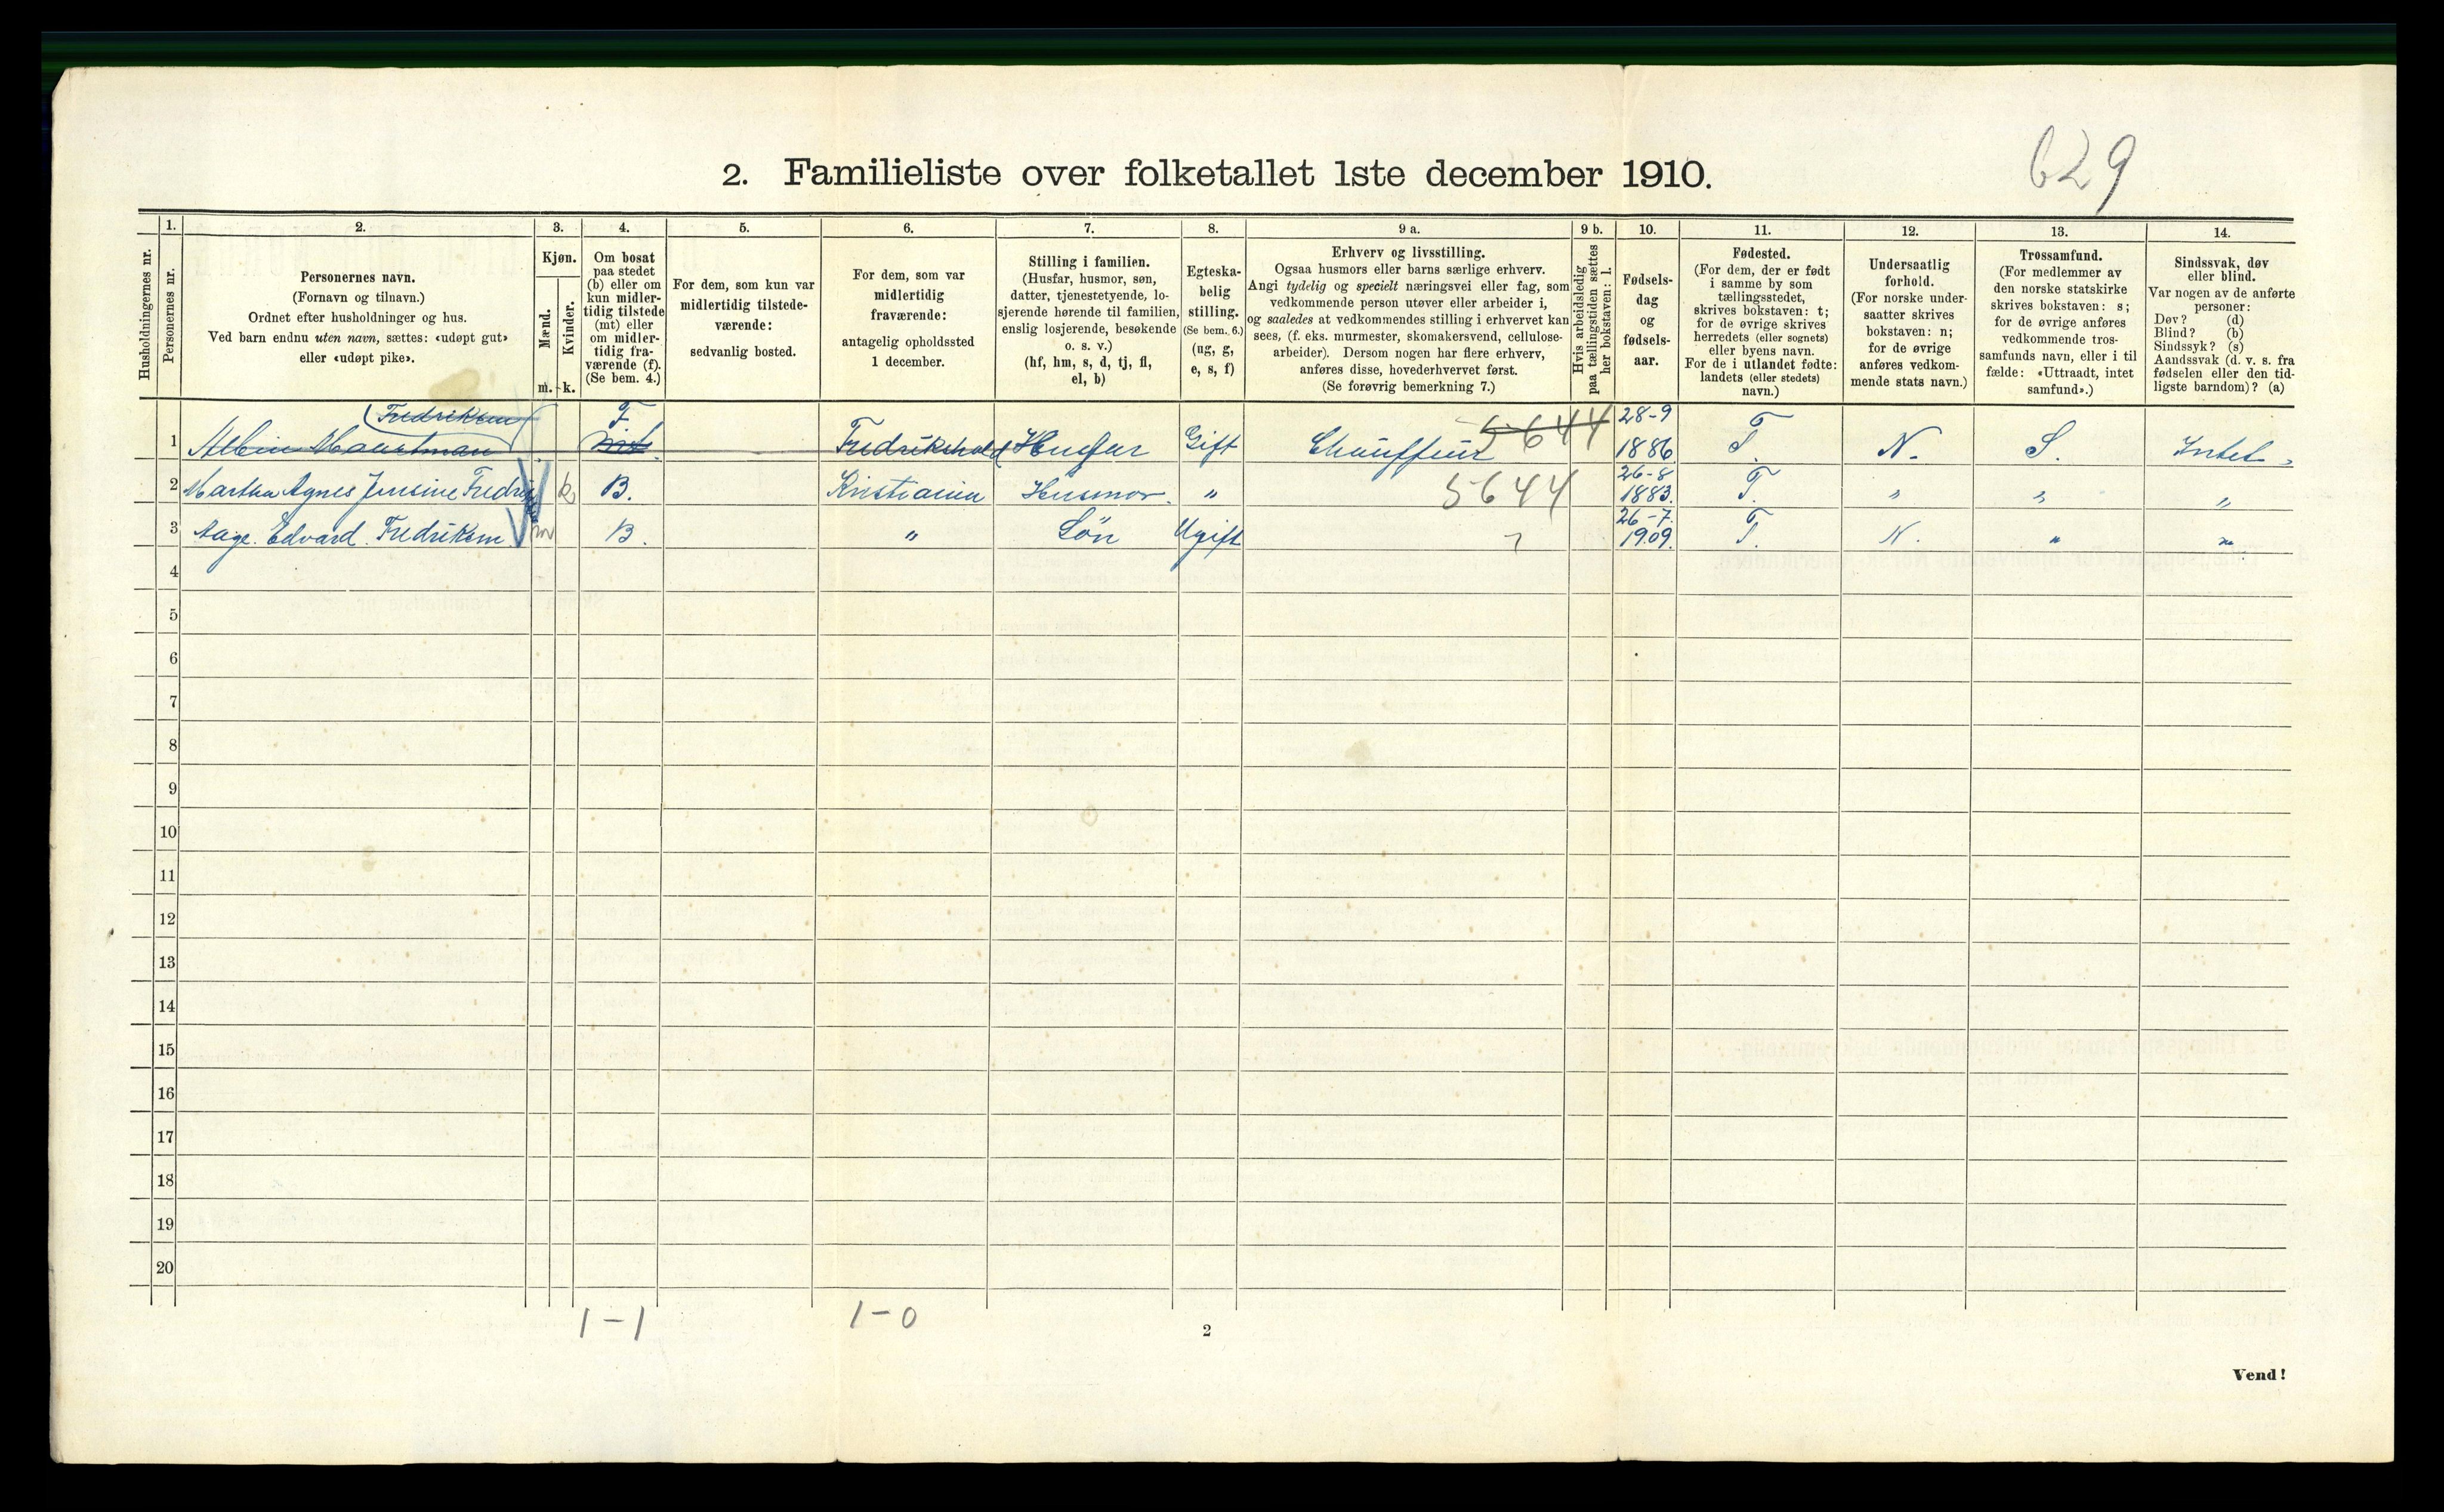 629
2. Familieliste over folketallet 1ste december 1910.
1. 2. 3. 4. 5. 6. 7. 8. 9 a. 9 b. 10. 11. 12. 13. 14.
Husholdningernes nr.
Personernes nr.
Personernes navn.
(Fornavn og tilnavn.)
Ordnet efter husholdninger og hus.
Ved barn endnu uten navn, sættes: «udøpt gut»
eller «udøpt pike».
Kjøn.
Mænd.
Kvinder.
m. k.
Om bosat
paa stedet
(b) eller om
kun midler-
tidig tilstede
(mt) eller
om midler-
tidig fra-
værende (f).
(Se bem. 4.)
For dem, som kun var
midlertidig tilstede-
værende:
sedvanlig bosted.
For dem, som var
midlertidig
fraværende:
antagelig opholdssted
1 december.
Stilling i familien.
(Husfar, husmor, søn,
datter, tjenestetyende, lo-
sjerende hørende til familien,
enslig losjerende, besøkende
o. s. v.)
(hf, hm, s, d, tj, fl,
el, b)
Egteska-
belig
stilling.
(Se bem. 6.)
(ug, g,
e, s, f)
Erhverv og livsstilling.
Ogsaa husmors eller barns særlige erhverv.
Angi tydelig og specielt næringsvei eller fag, som
vedkommende person utøver eller arbeider i,
og saaledes at vedkommendes stilling i erhvervet kan
sees, (f. eks. murmester, skomakersvend, cellulose-
arbeider). Dersom nogen har flere erhverv,
anføres disse, hovederhvervet først.
(Se forøvrig bemerkning 7.)
Hvis arbeidsledig
paa tællingstiden sættes
her bokstaven: l.
Fødsels-
dag
og
fødsels-
aar.
Fødested.
(For dem, der er født
i samme by som
tællingsstedet,
skrives bokstaven: t;
for de øvrige skrives
herredets (eller sognets)
eller byens navn.
For de i utlandet fødte:
landets (eller stedets)
navn.)
Undersaatlig
forhold.
(For norske under-
saatter skrives
bokstaven: n;
for de øvrige
anføres vedkom-
mende stats navn.)
Trossamfund.
(For medlemmer av
den norske statskirke
skrives bokstaven: s;
for de øvrige anføres
vedkommende tros-
samfunds navn, eller i til
fælde: «Uttraadt, intet
samfund».)
Sindssvak, døv
eller blind.
Var nogen av de anførte
personer:
Døv? (d)
Blind? (b)
Sindssyk? (s)
Aandssvak (d. v. s. fra
fødselen eller den tid-
ligste barndom)? (a)
(Fredriksen F. 5644 28-9
1 mt Fredrikshald Husfar Gift Chauffeur 1886 T. N. S. Intet
2 Martha Agnes Jensine k B. Kristiania Husmor. " 5644 26-8 1883. T. " " "
3 Aage. Edvard. Fredriksen m B. " Sön Ugift 26-7. 1909. T. N. " "
4
5
6
7
8
9
10
11
12
13
14
15
16
17
18
19
20
1-1 1-0
2
Vend!